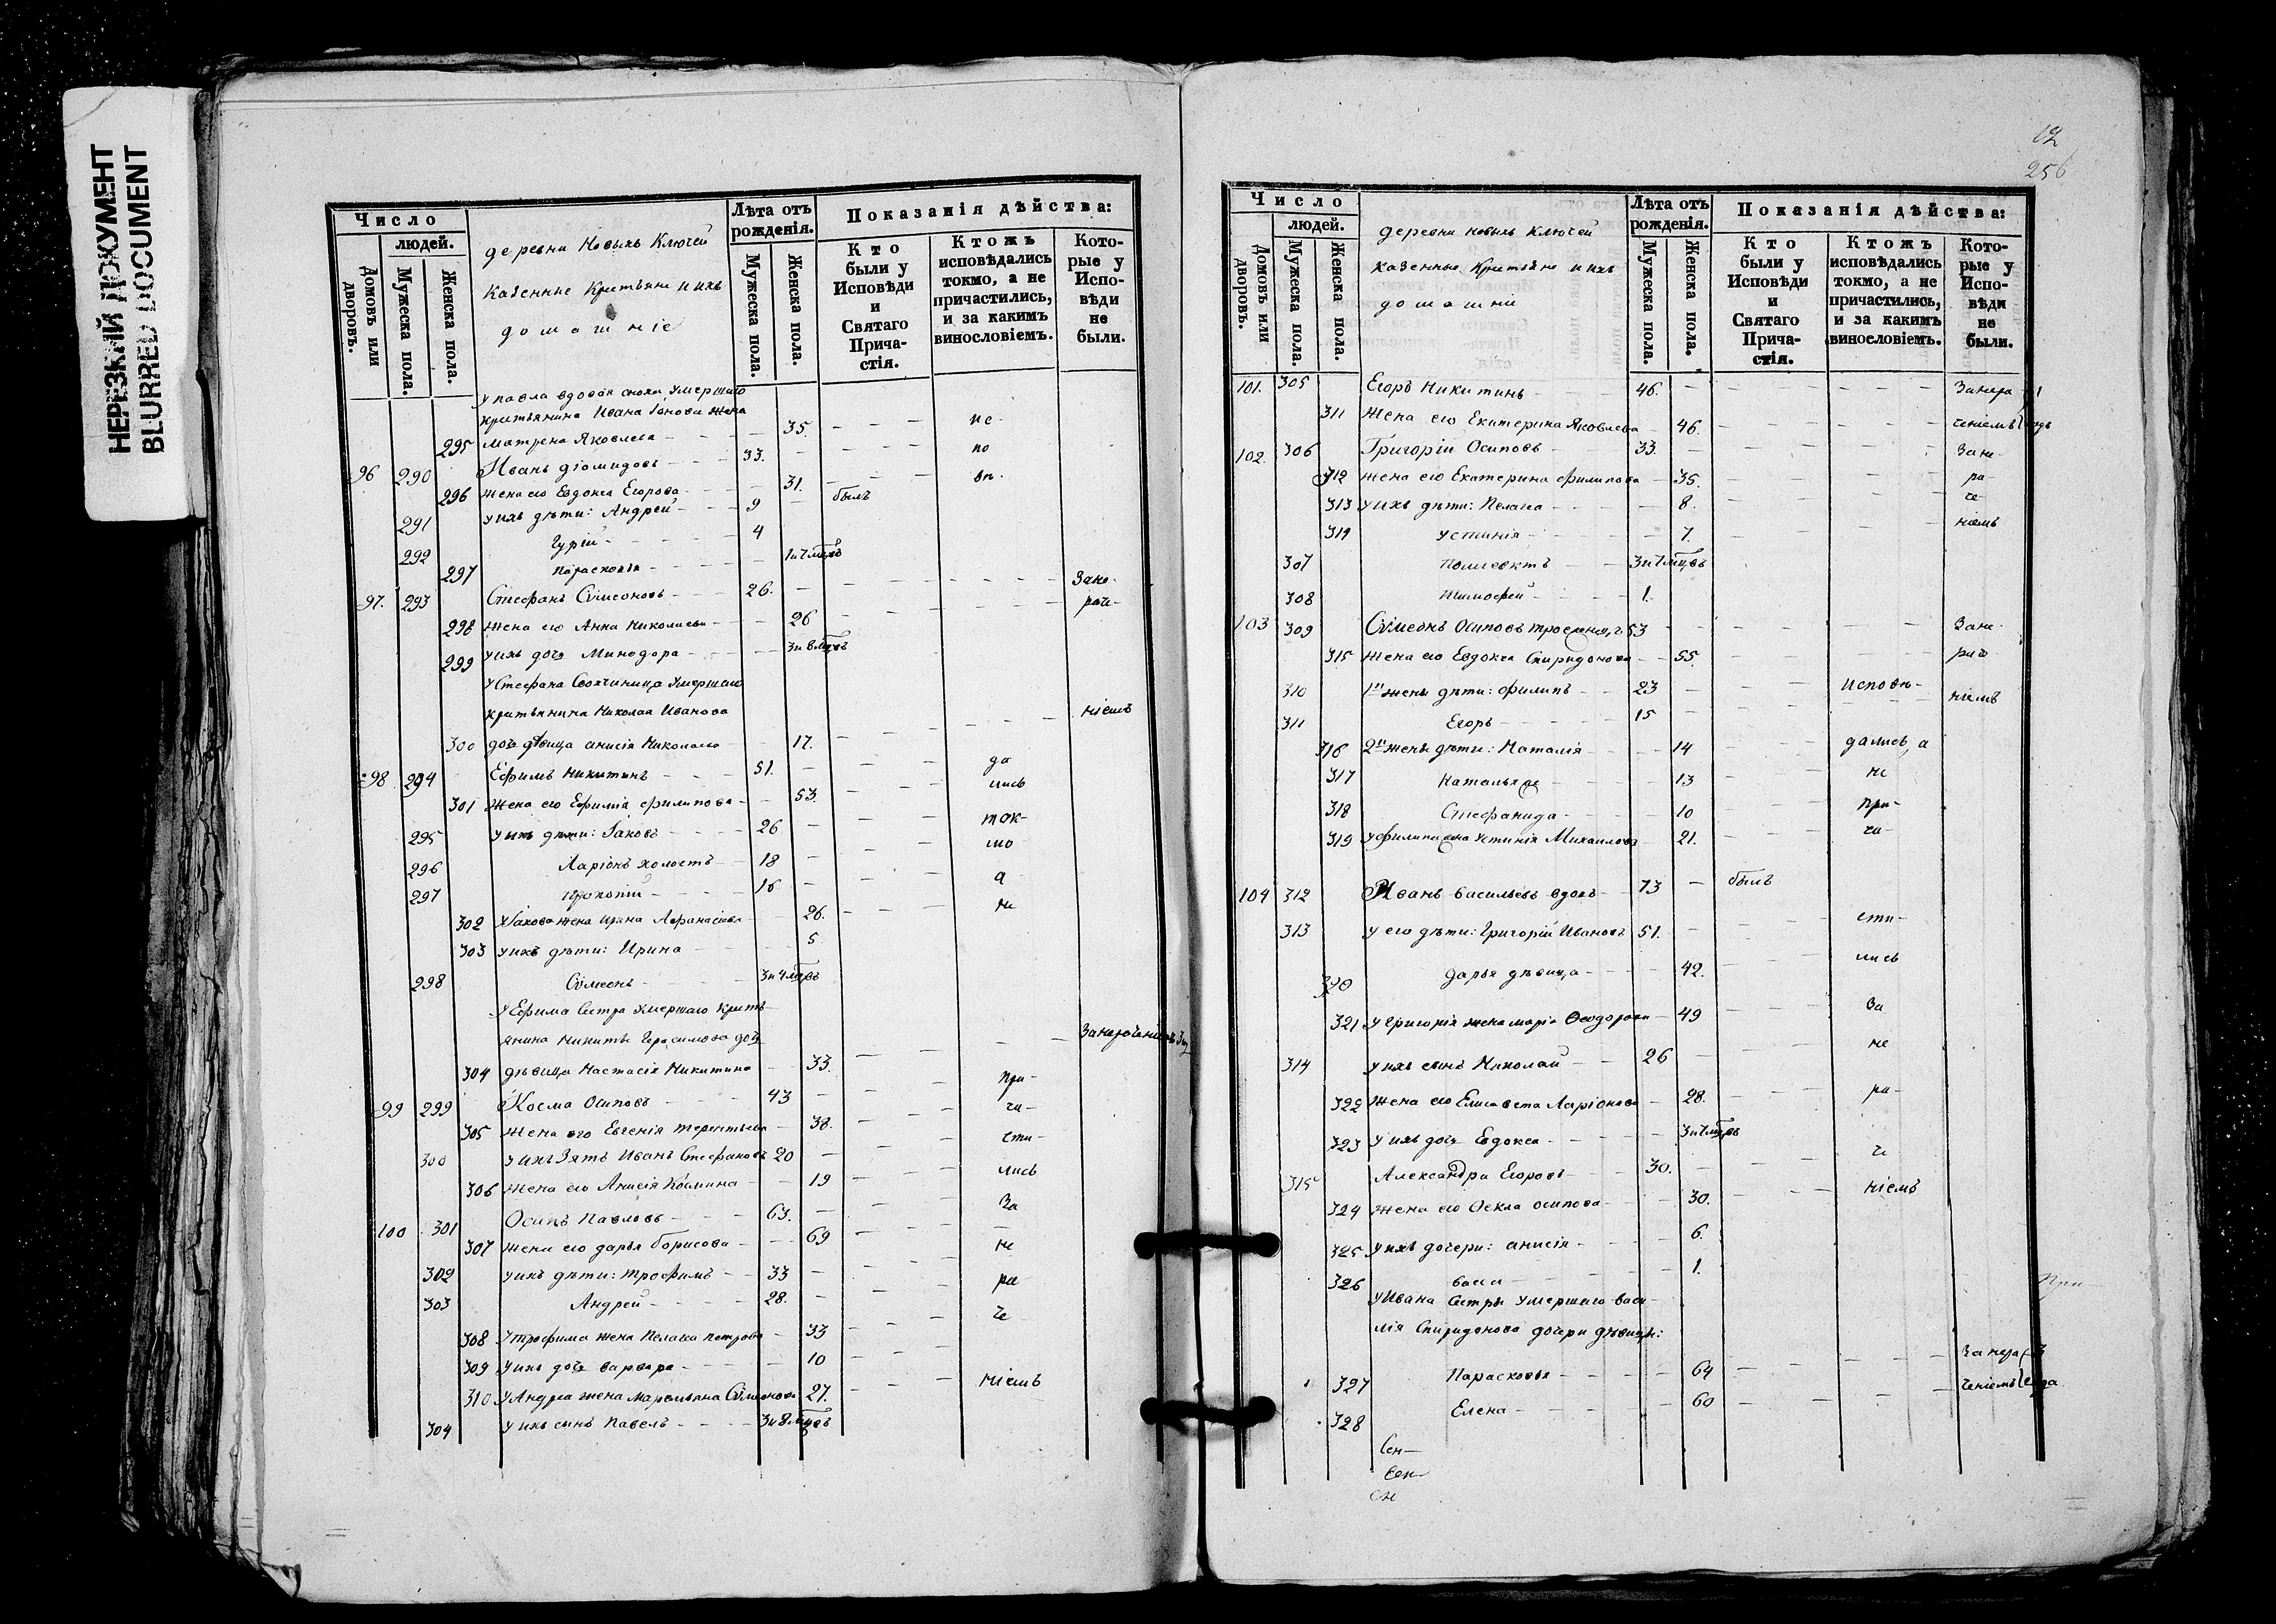 НЕРЕЗКИЙ ДОКУМЕНТ
BLURRED DOCUMENT
Число
людей.
Домовъ или дворовъ.
Мужеска пола.
Женска пола.
деревни Новыхъ Ключей
казенные Кретьяне и ихъ
домашніе
Лѣта отъ рожденія.
Мужеска пола.
Женска пола.
Показанія дѣйства:
Кто были у Исповѣди и Святаго Прича-стія.
Ктожъ исповѣдались токмо, а не причастились, и за какимъ винословіемъ.
Кото-рые у Испо-вѣди не были.
у павла вдовая сноха умершаго
кретьянина Ивана Іонова жена
295 Матрена Яковлева - 35. - ис-
96 290 Иванъ Діомидовъ - 33. - по
296 жена его Евдокса Егорова - 31. - вѣ-
291 у ихъ дѣти: Андрей - 9 - былъ
292 Гурій - 4
297 Парасковія - 1 и 7 мцовъ
97. 293 Стефанъ Сѵмеоновъ - 26. - Зане-
298 жена его Анна Николаева - 26 - раче-
299 у ихъ дочь Минодора - 3 и 8 мцовъ
У Стефана Своячиница умершаго
кретьянина Николая Иванова
ніемъ
300 дочь дѣвица анисія Николаева - 17.
98 294 Ефимъ Никитинъ - 51. - да
301 жена его Ефимія филипова - 53. - лись
295 у ихъ дѣти: Іаковъ - 26 - ток-
296 Ларіонъ холостъ - 18 - мо
297 Прокопій - 16 - а
302 у Іакова жена Ирина Афанасіева - 26. - не
303 у ихъ дѣти: Ирина - 5
298 Сѵмеонъ - 3 и 4 мцовъ
у Ефима Сестра умершаго крить-
янина Никиты Герасимова дочь
304 дѣвица Настасія Никитина - 33.
99 299 Косма Осиповъ - 43 - при-
305 жена его Евгенія терентьева - 38. - ча-
300 у ихъ Зять Иванъ Стефановъ 20 - сти-
306 жена его Анисія Космина - 19 - лись
100 301 Осипъ Павловъ - 63. - За
307 жена его дарья борисова - 69 - не
302 у ихъ дѣти: трофимъ - 33 - ра
303 Андрей - 28. - че
308 у трофима жена Пелагея петрова - 33
309 у ихъ дочь варвара - 10
310 у Андрея жена Маремьяна Сѵмеонова 27. - ніемъ
304 у ихъ сынъ Павелъ - 3 и 8 мцовъ
256
Число
людей.
Домовъ или дворовъ.
Мужеска пола.
Женска пола.
деревни новыхъ ключей
казенные Критьяне и ихъ
домашни
Лѣта отъ рожденія.
Мужеска пола.
Женска пола.
Показанія дѣйства:
Кто были у Исповѣди и Святаго Прича-стія.
Ктожъ исповѣдались токмо, а не причастились, и за какимъ винословіемъ.
Кото-рые у Испо-вѣди не были.
101. 305 Егоръ Никитинъ - 46. - Занера
311 Жена его Екатерина Яковлева - 46. - ченіемъ
102. 306 Григорій Осиповъ - 33. - Зане-
312 жена его Екатерина филипова - 35. - ра-
313 у ихъ дѣти: Пелагея - 8. - че-
314 устинія - 7. - ніемъ
307 Полиевктъ - 3 и 7 мцовъ
308 тимофей - 1.
103 309 Сѵмеонъ Осиповъ 53 - Зане-
315 жена его Евдокса Спиридонова - 55. - раче
310 1й жены дѣти: филипъ - 23 - исповѣ- ніемъ
311 Егоръ - 15
316 2й жены дѣти: Наталія - 14 - дались, а
317 Наталья - 13 - не
318 Стефанида - 10 - при-
319 у филипа жена Устинія Михаилова - 21. - ча-
104 312 Иванъ васильевъ вдовъ - 73 - былъ
313 у его дѣти: Григорій Ивановъ 51. - сти-
320 дарья дѣвица - 42. - лись
321 у Григорія жена марія Ѳеодорова - 49 - За
314 у ихъ сынъ Николай - 26 - не
322 жена его Елисавета Ларіонова - 28. - ра-
323 у ихъ дочь Евдокса - 3 и 7 мцовъ
315 Александра Егоровъ - 30. - че
324 жена его Ѳекла осипова - 30. - ніемъ
325 у ихъ дочери: анисія - 6.
326 васса - 1.
у Ивана Сестры умершаго васи-
лія Спиридонова дочери дѣвицы:
327 Парасковья - 64 - Занера
328 Елена - 60 - ченіемъ
Сен-
Сен
Сн